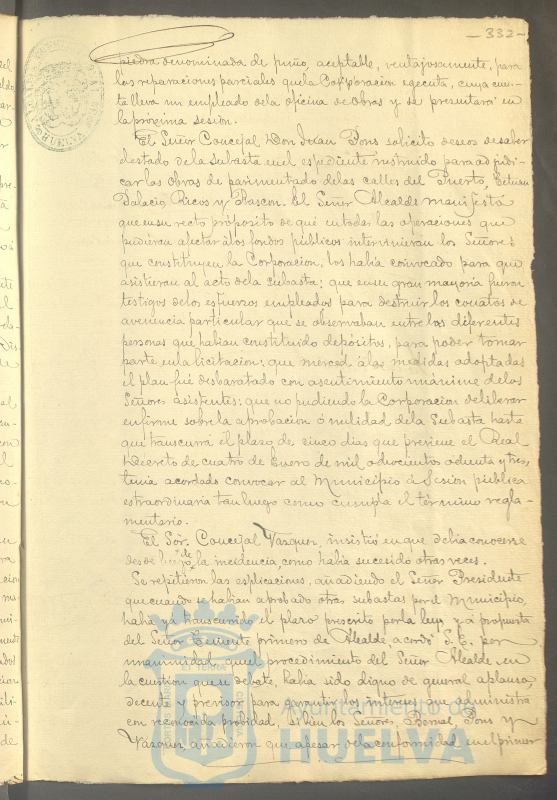 -332-
piedra denominada de puño, aceptable, ventajosamente, para
las reparaciones parciales que la Corporacion egecuta, cuya cuen-
ta lleva un empleado dela oficina de Obras y se presentará en
la proxima sesion.
El Señor Concejal Don Juan Pons solicitó deseos de saber
el estado de la subasta en el espediente instruido para adjudi-
car las Obras de pavimentado delas calles del Puerto, Tetuan
Palacio, Ricos y Rascon. El Señor Alcalde manifestó
que en su recto propósito de que en todas las operaciones que
pudieran afectar á los fondos públicos intervinieran los Señores
que constituyen la Corporacion, los habia convocado para que
asistieran al acto dela subasta; que en su gran mayoria fueron
testigos delos esfuerzos empleados para destruir los conatos de
avenencia particular que se observaban entre las diferentes
personas que habian constituido depósitos, para poder tomar
parte en la licitacion; que merced á las medidas adoptadas
el plan fué desbaratado con asentimiento unánime delos
Señores asistentes; que no pudiendo la Corporacion deliberar
en firme sobre la aprobacion ó nulidad dela Subasta hasta
que transcurra el plazo de cinco dias que previene el Real
Decreto de cuatro de Enero de mil ochocientos ochenta y tres,
tenia acordado convocar al Municipio á sesion pública
estraordinaria tan luego como cumpla el término regla-
mentario.
El Sór. Concejal Vazquez, insistió en que debia conocerse
desde luego la incidencia como habia sucedido otras veces.
Se repitieron las esplicaciones, añadiendo el Señor Presidente
que cuando se habian aprobado otras subastas por el Municipio,
habia ya transcurrido el plazo prescrito por la ley, y á propuesta
del Señor Teniente primero de Alcalde acordó S. E. por
unanimidad que el procedimiento del Señor Alcalde en
la cuestion que se debate, habia sido digno de general aplauso,
decente y previsor para garantir los intereses que administra
con reconocida probidad, si bien los Señores Bernal, Pons y
Vazquez añadieron que apesar de la conformidad en el primer
Ayuntamiento de
HUELVA